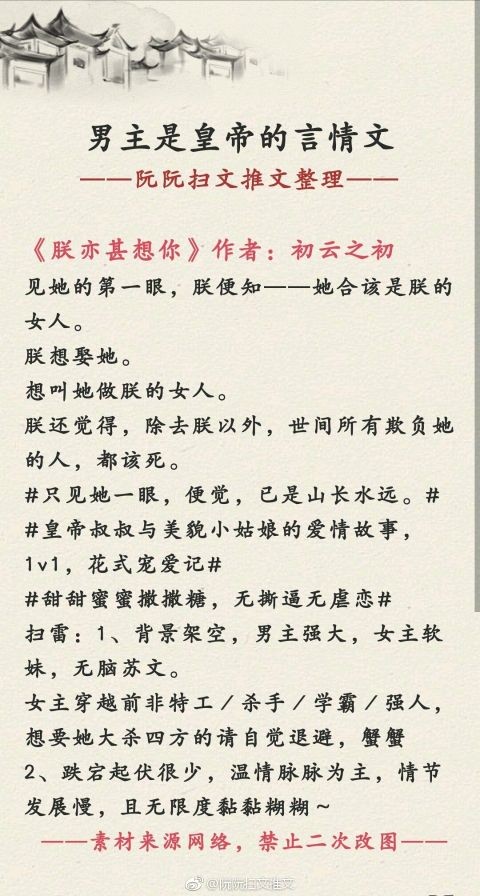 男主是皇帝的言情文
——阮阮扫文推文整理——
《朕亦甚想你》作者：初云之初
见她的第一眼，朕便知——她合该是朕的
女人。
朕想娶她。
想叫她做朕的女人。
朕还觉得，除去朕以外，世间所有欺负她
的人，都该死。
#只见她一眼，便觉，已是山长水远。#
#皇帝叔叔与美貌小姑娘的爱情故事，
1v1，花式宠爱记#
#甜甜蜜蜜撒撒糖，无撕逼无虐恋#
扫雷：1、背景架空，男主强大，女主软
妹，无脑苏文。
女主穿越前非特工／杀手／学霸／强人，
想要她大杀四方的请自觉退避，蟹蟹
2、跌宕起伏很少，温情脉脉为主，情节
发展慢，且无限度黏黏糊糊～
——素材来源网络，禁止二次改图——
@阮阮扫文推文